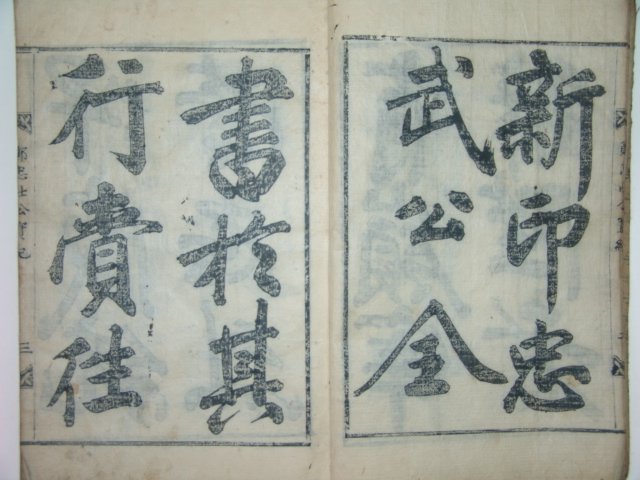 新印忠
武公全
書於其
行費往